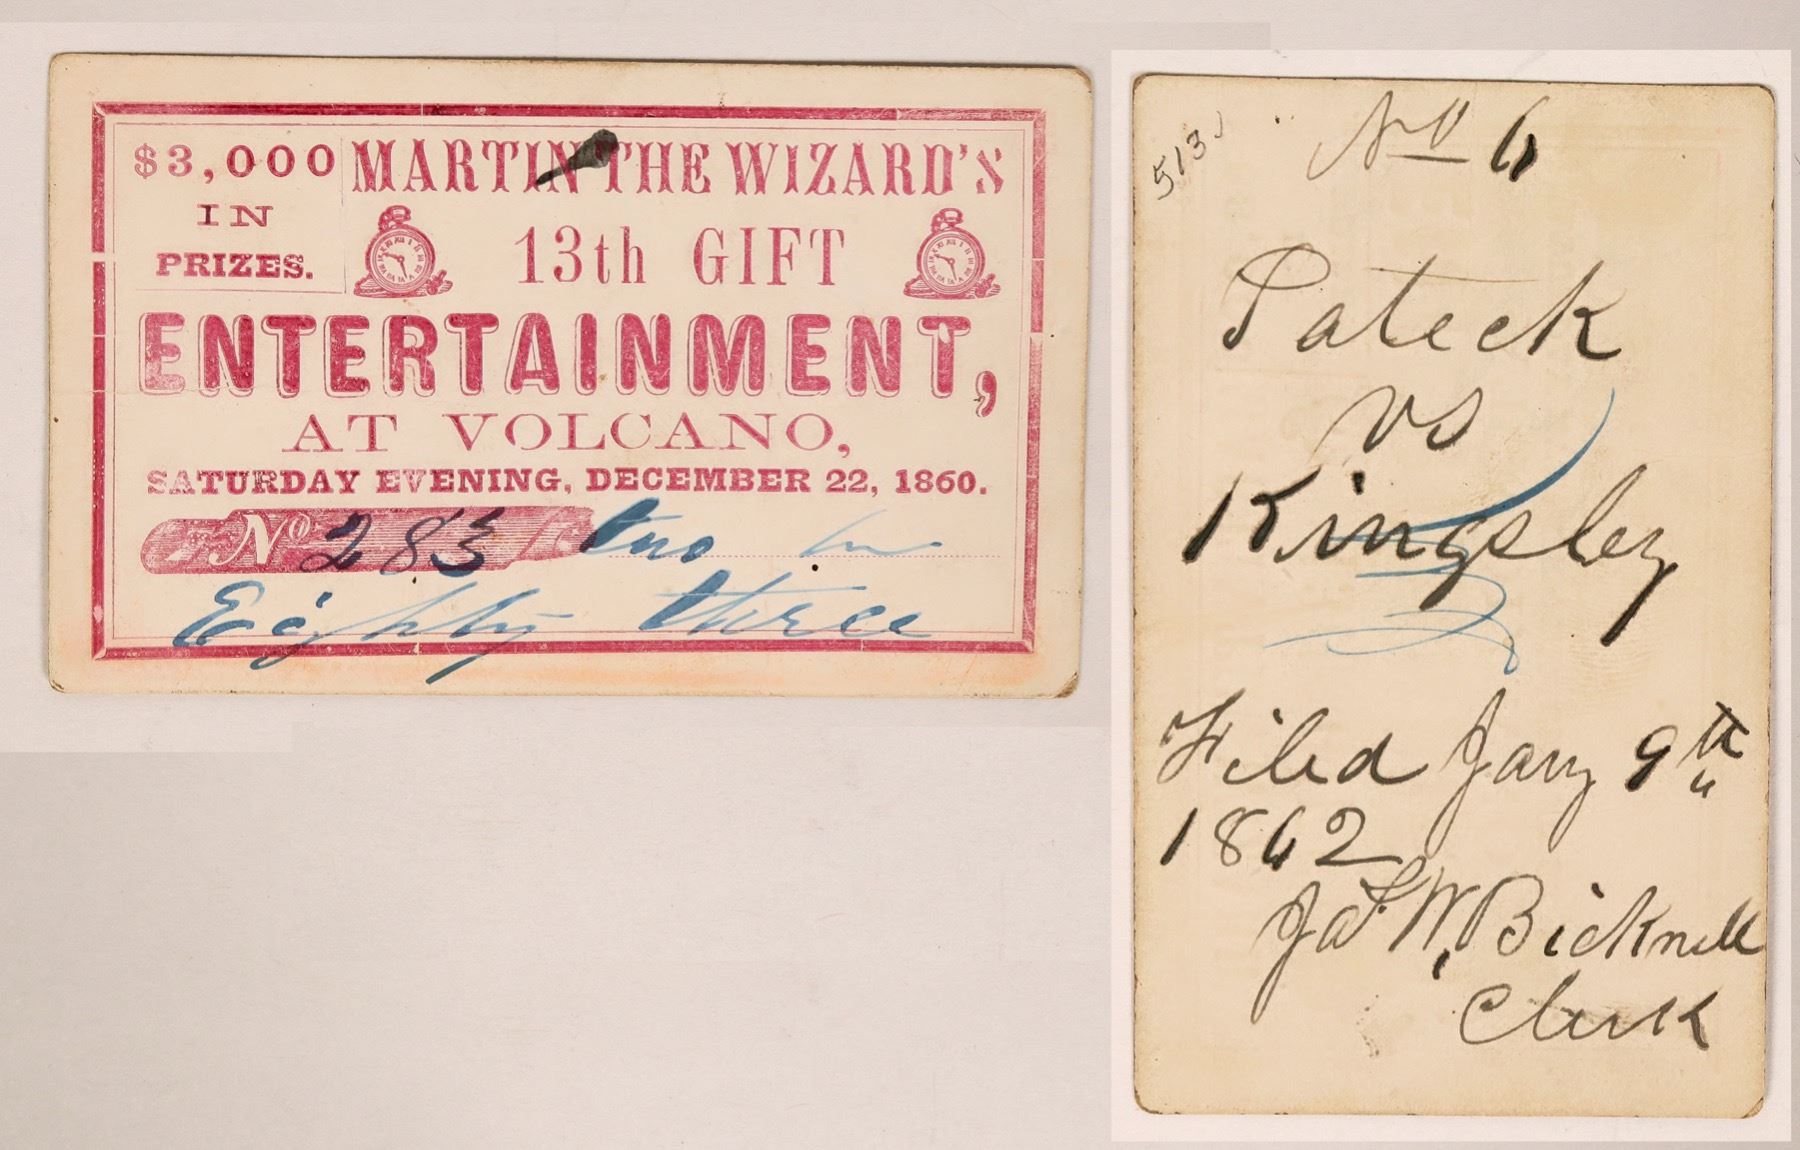 $3,000
IN
PRIZES.
MARTIN THE WIZARD'S
13th GIFT
ENTERTAINMENT,
AT VOLCANO,
SATURDAY EVENING, DECEMBER 22, 1860.
No 283 two
Eighty three
5131
No 6
Pateck
vs
Kingsley
Filed Jany 9th
1862
Jas W. Bicknell
Clerk